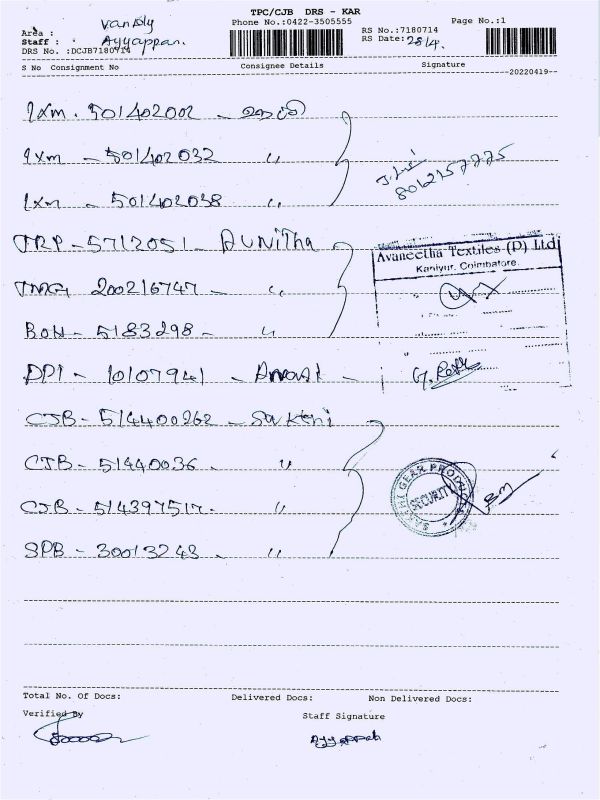 TPC/CJB DRS - KAR
Phone No.:0422-3505555 Page No.:1
Area :
Staff : Ayyappan.
DRS No. :DCJB7180714
RS No.:7180714
RS Date: 28/4.
S No Consignment No Consignee Details Signature
--20220419--
501402002 -
- 501402032 〃
- 501402038 〃
8012157775
TRP - 5712051 -
200216747 - 〃
- 5183298 - 〃
Avaneetha Textiles (P) Ltd
Kaniyur, Coimbatore.
- 10107941 -
CJB - 514400262 -
CJB - 51440036 - 〃
CJB - 514397517 - 〃
SPB - 30013243 - 〃
SAKTHI GEAR PRODUCTS
SECURITY
Total No. Of Docs: Delivered Docs: Non Delivered Docs:
Verified By Staff Signature
Ayyappan